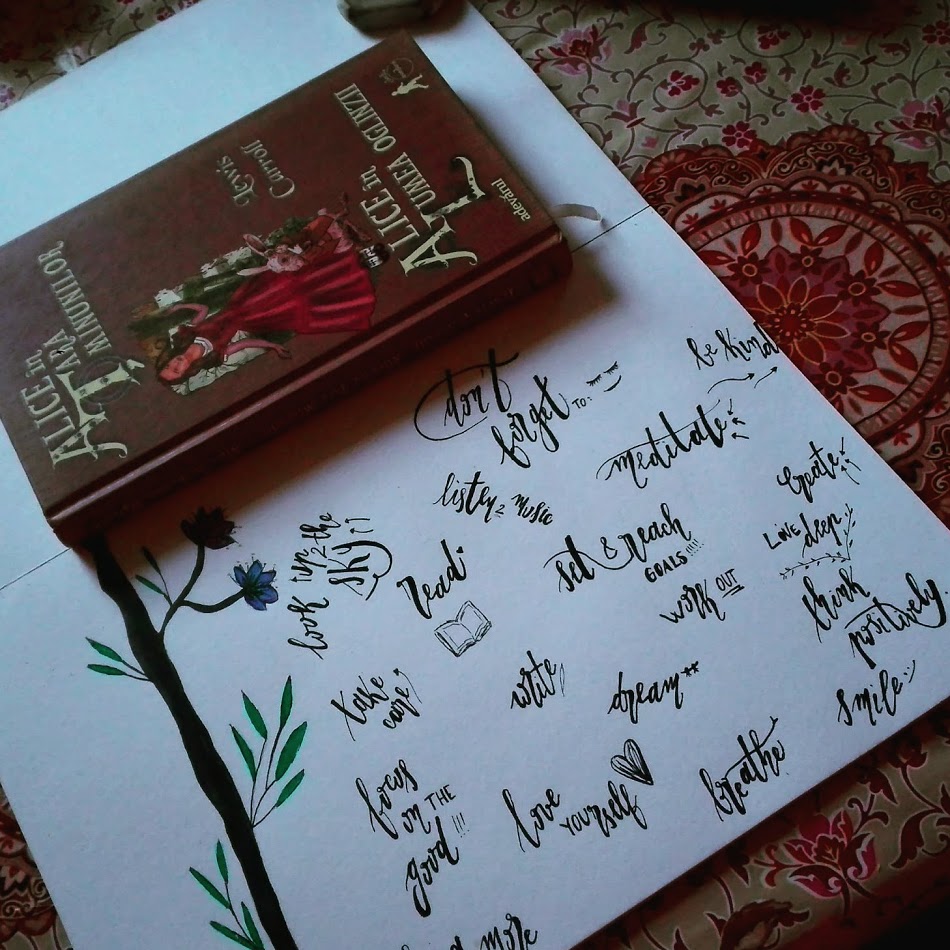 Lewis
Carroll
ALICE în
ȚARA
MINUNILOR,
ALICE în
LUMEA OGLINZII
adevărul
don't
forget TO:
be kind
meditate
listen 2 music
create
look up 2 the
sky
read
set & reach
GOALS!!!!
LOVE deep
work OUT
think
positively
take
care
write
dream**
smile
focus
on THE
good!!!
love
YOURself
breathe
more